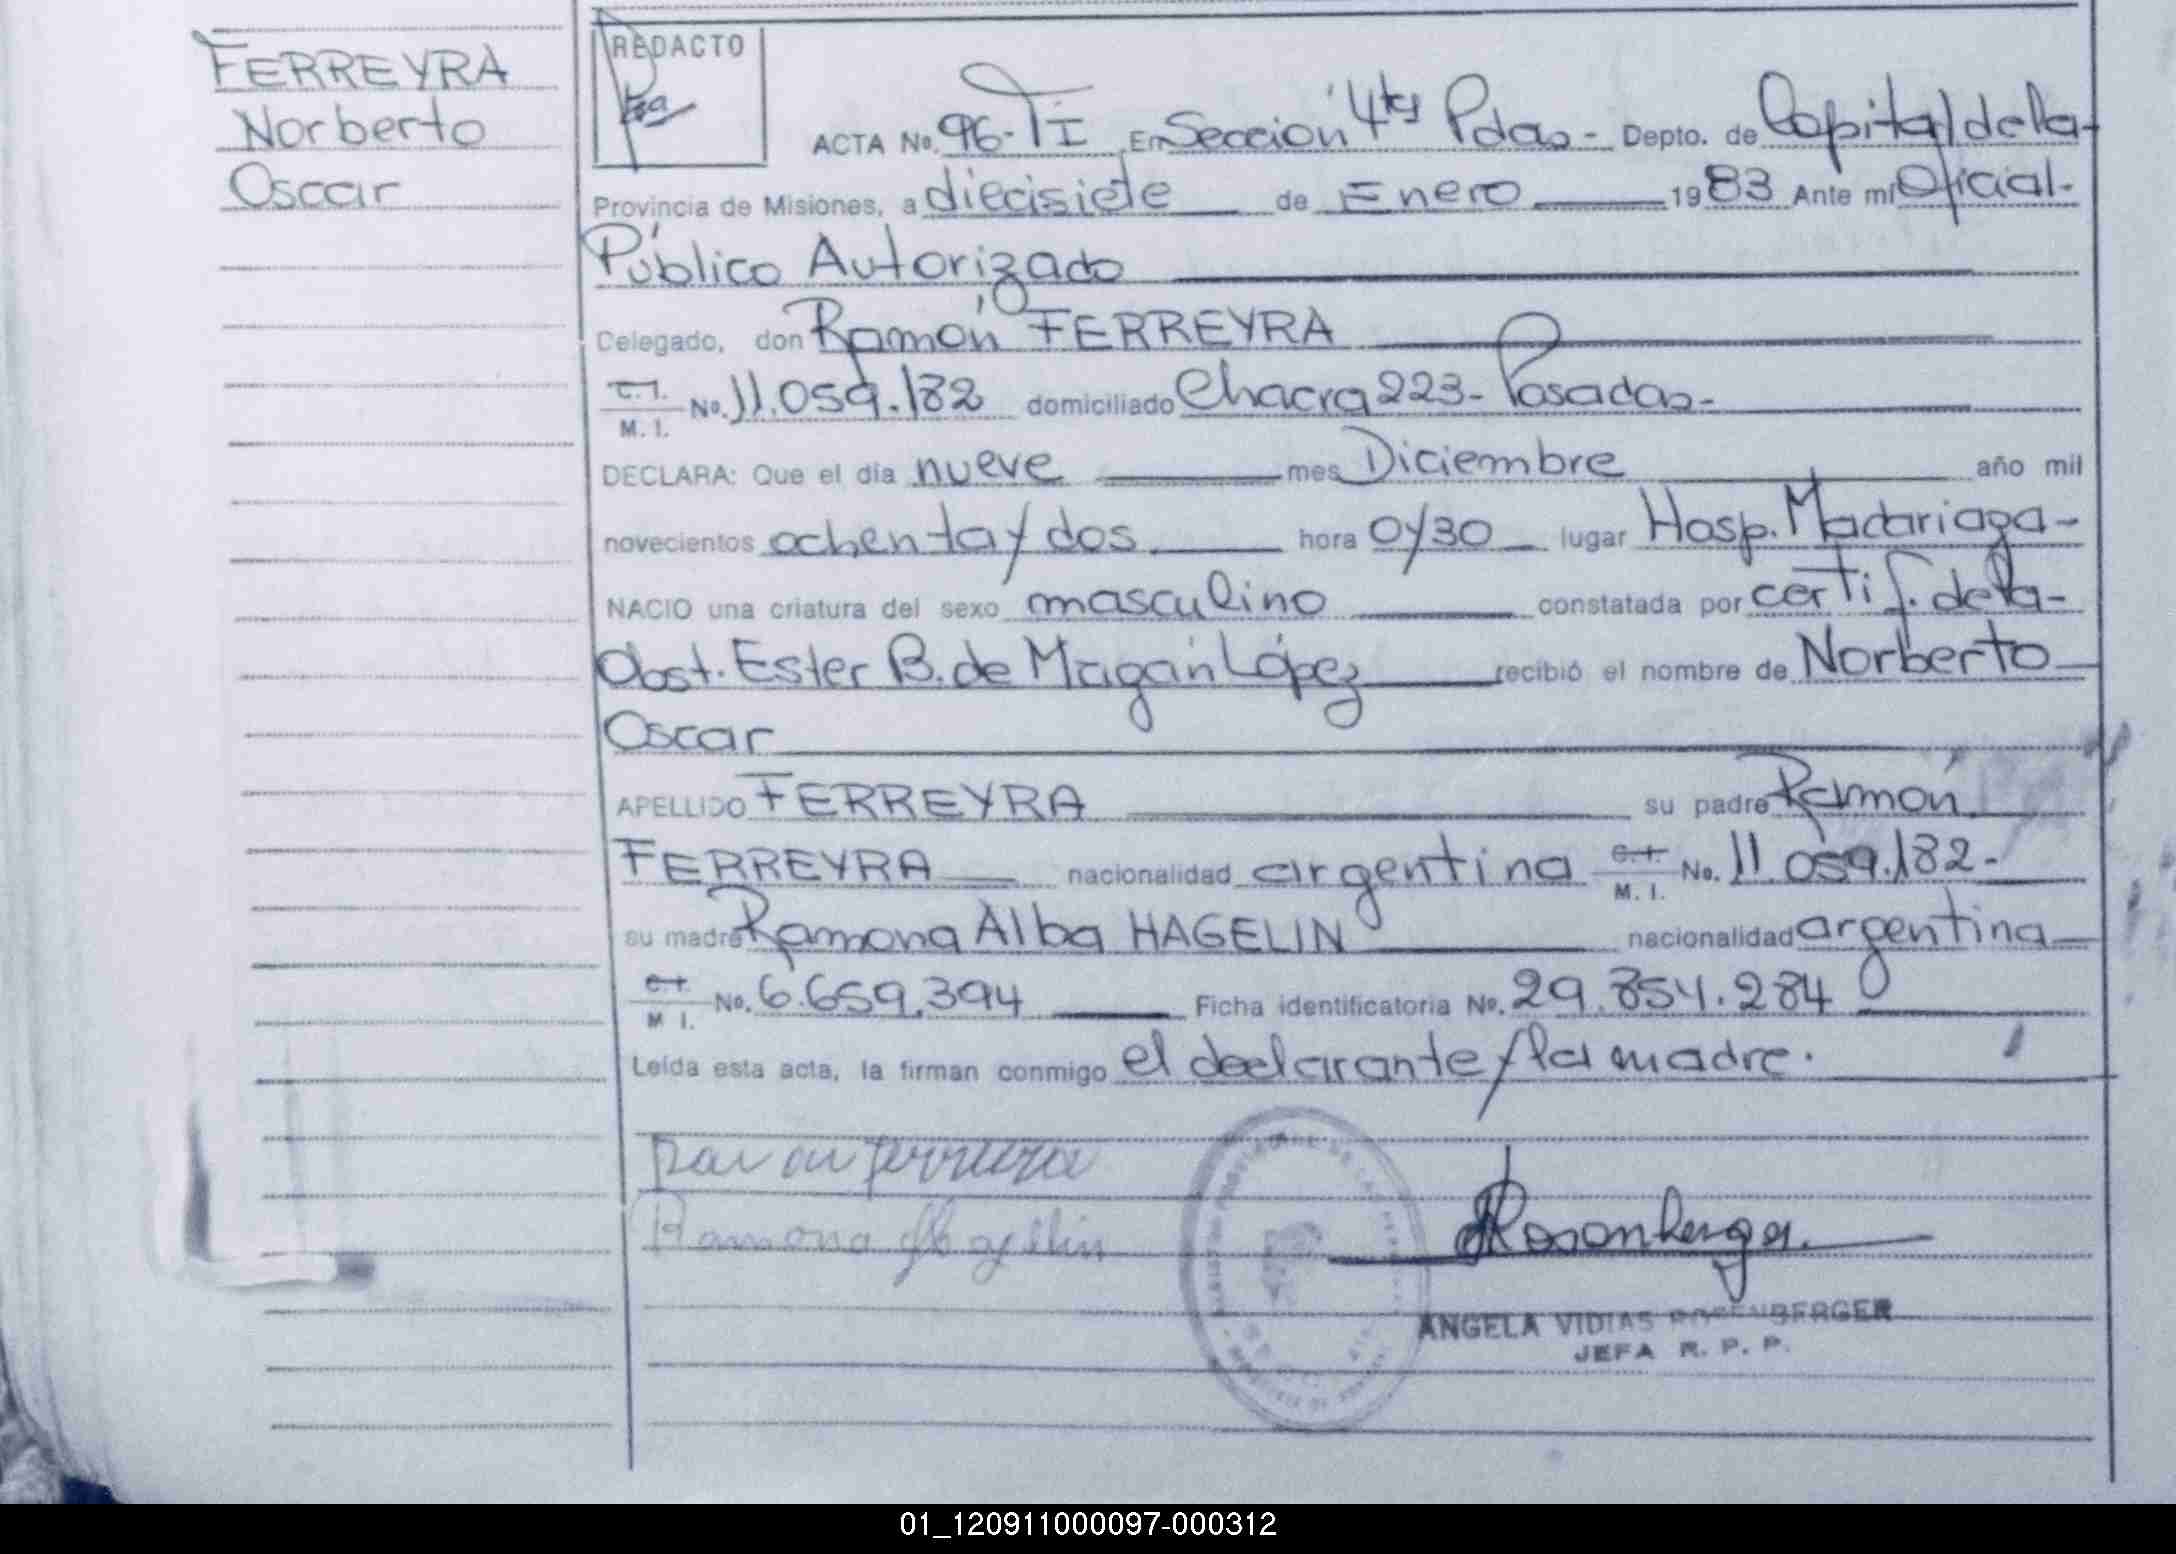 FERREYRA
Norberto
Oscar
REDACTO
ACTA No. 96-TI En Sección 4ta Pdas- Depto. de Capital de la-
Provincia de Misiones, a diecisiete de Enero 1983 Ante mí Oficial-
Público Autorizado
Celegado, don Ramón FERREYRA
C.I. M. I. No. 11.059.182 domiciliado Chacra 223- Posadas-
DECLARA: Que el día nueve mes Diciembre año mil
novecientos ochenta y dos hora 0y30 lugar Hosp. Madariaga-
NACIO una criatura del sexo masculino constatada por certif. de la-
Obst. Ester B. de Magán López recibió el nombre de Norberto
Oscar
APELLIDO FERREYRA su padre Ramón
FERREYRA nacionalidad argentina C.I. M. I. No. 11.059.182-
su madre Ramona Alba HAGELIN nacionalidad argentina
C.I. M I. No. 6.659.394 Ficha identificatoria No. 29.854.284
Leída esta acta, la firman conmigo el declarante y la madre.
Ramona
ANGELA VIDIAS ROSENBERGER
JEFA R. P. P.
01_120911000097-000312